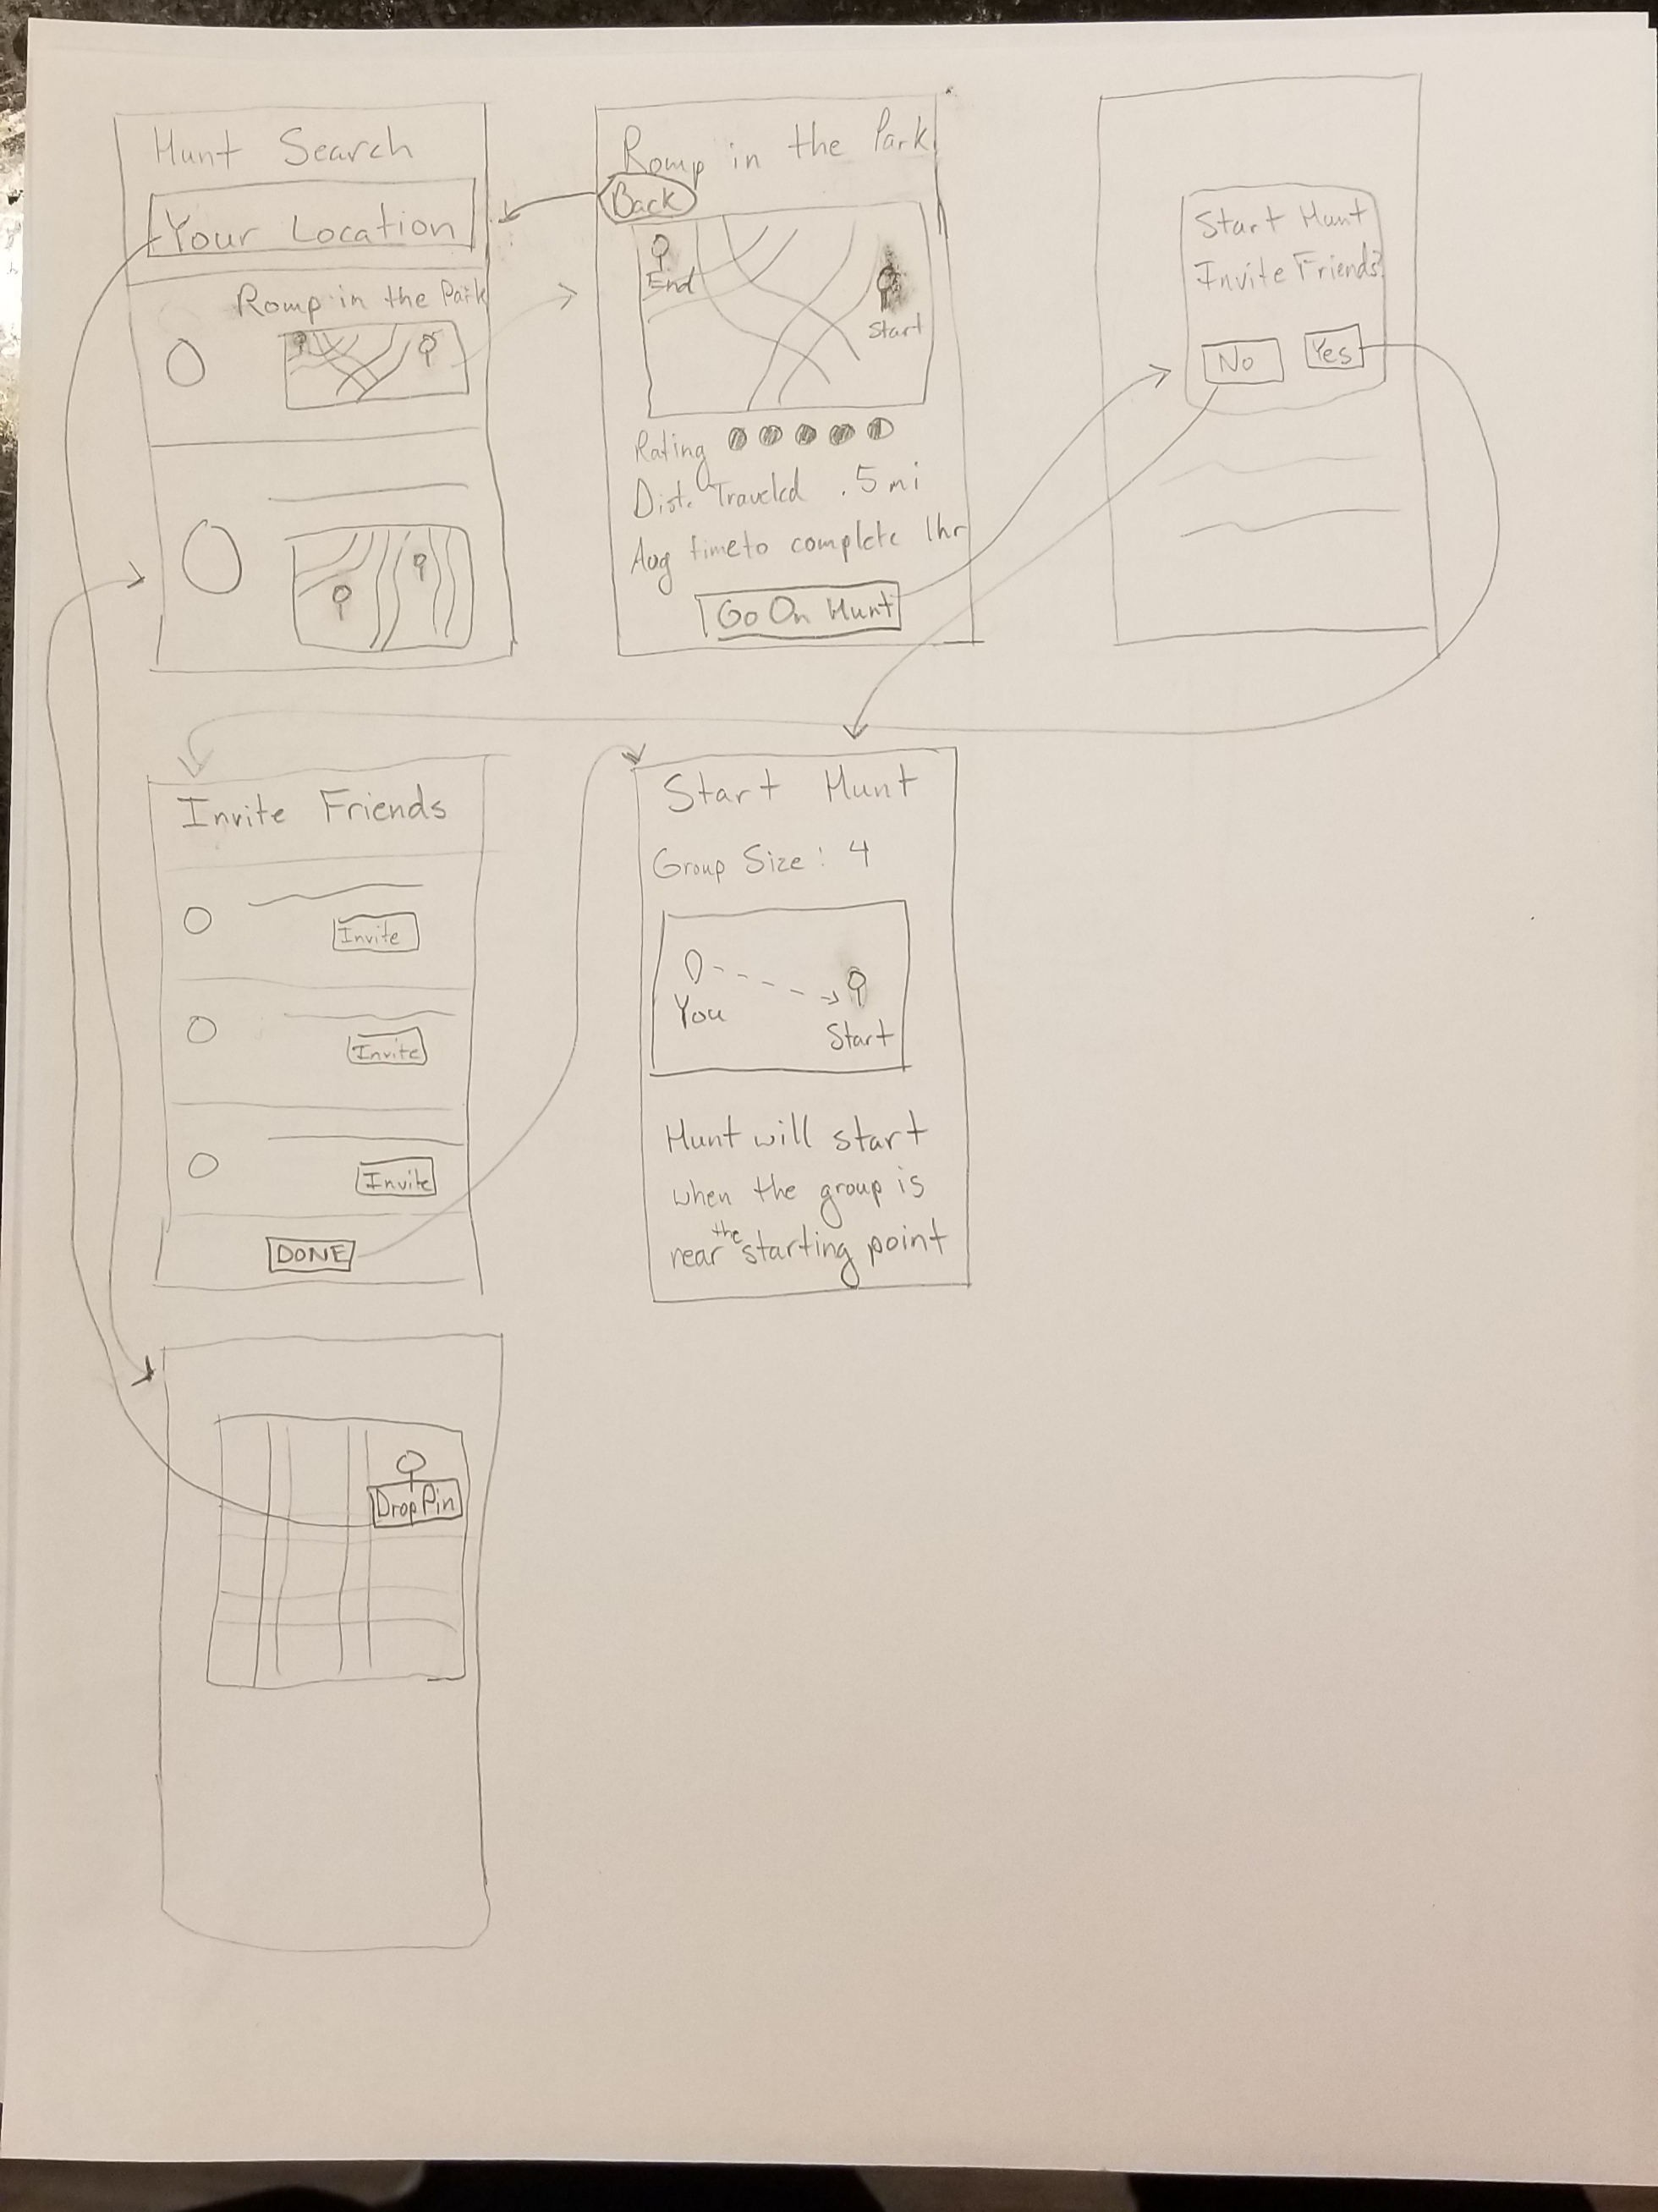 Hunt Search
Your Location
Romp in the Park
Romp in the Park
Back
End
Start
Rating
Dist. Traveled .5 mi
Avg time to complete 1hr
Go On Hunt
Start Hunt
Invite Friends?
No
Yes
Invite Friends
Invite
Invite
Invite
DONE
Start Hunt
Group Size: 4
You
Start
Hunt will start
when the group is
near the starting point
Drop Pin